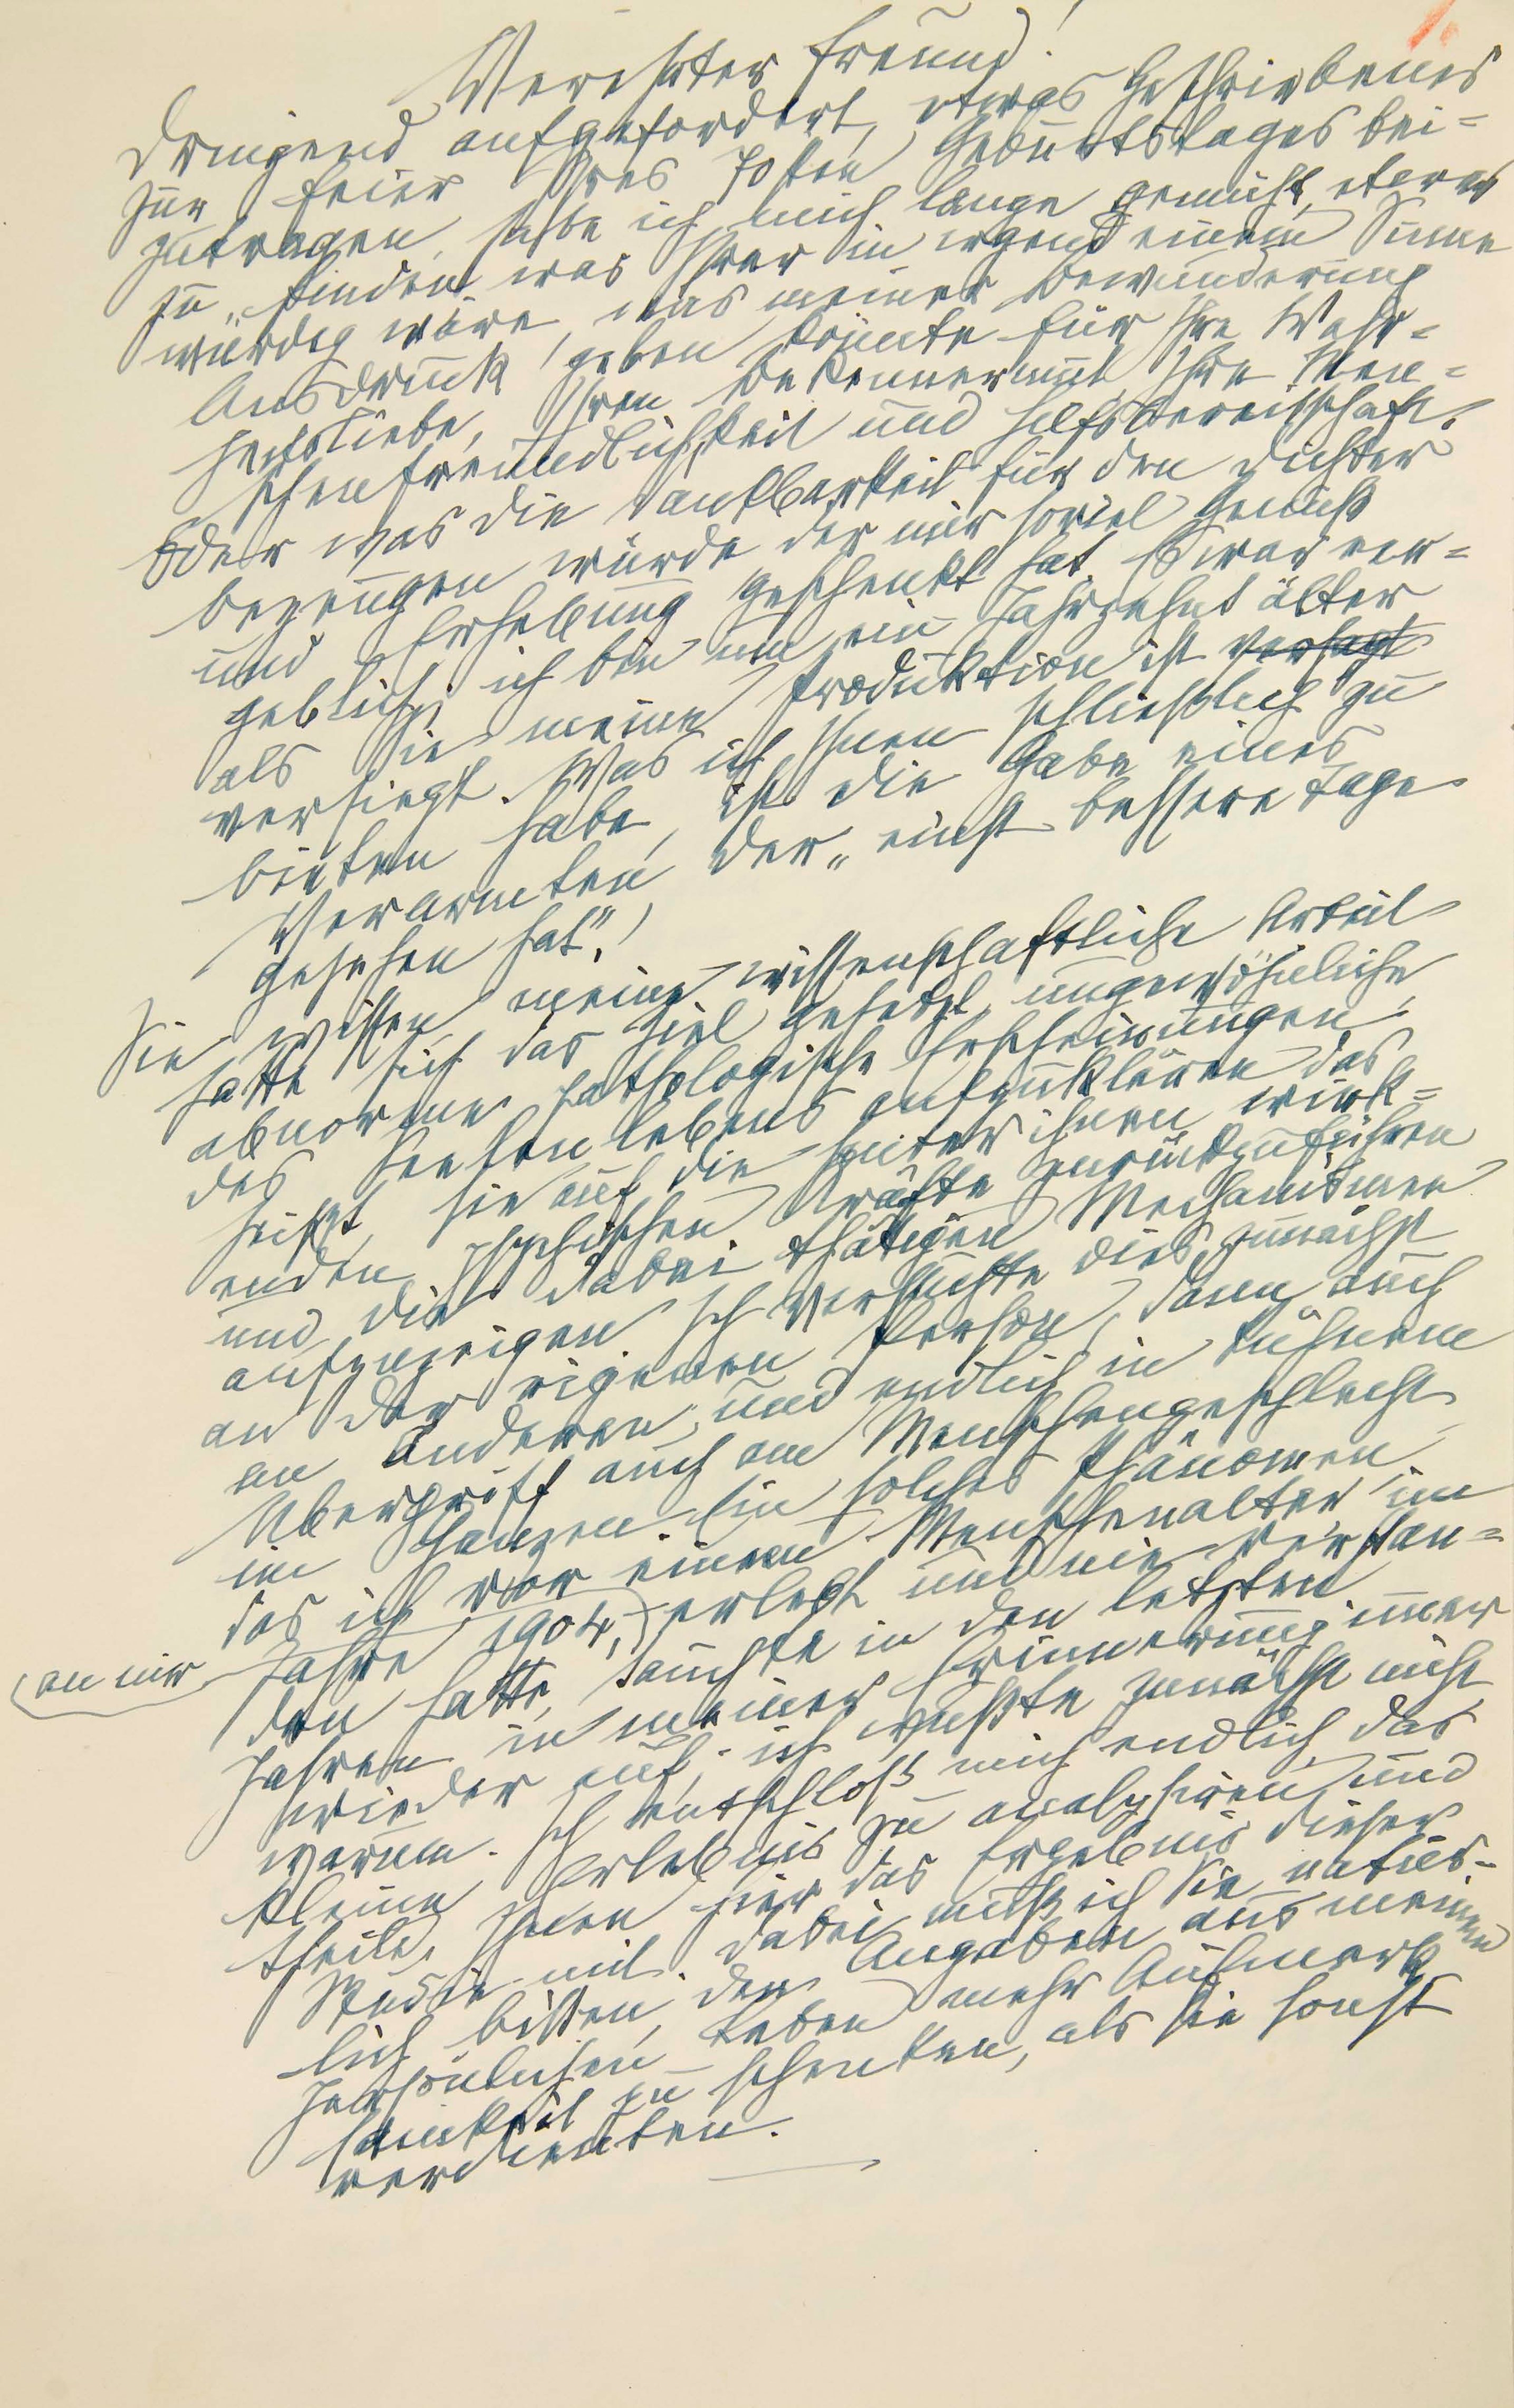 Verehrter Freund!
Dringend aufgefordert, etwas Geschriebenes
zur Feier Ihres 70sten Geburtstages bei=
zutragen, habe ich mich lange gemüht, etwas
zu finden was Ihrer in irgend einem Sinne
würdig wäre, was meiner Bewunderung
Ausdruck geben könnte für Ihre Wahr=
heitsliebe, Ihren Bekennermut Ihre Men=
schenfreundlichkeit und Hilfsbereitschaft.
Oder was die Dankbarkeit für den Dichter
bezeugen würde der mir soviel Genuß
und Erhebung geschenkt hat. Es war ver=
geblich; ich bin um ein Jahrzehnt älter
als Sie meine Produktion ist versagt
versiegt. Was ich Ihnen schließlich zu
bieten habe, ist die Gabe eines
Verarmten der „einst bessere Tage
gesehen hat“.
Sie wissen meine wissenschaftliche Arbeit
hatte sich das Ziel gesetzt, ungewöhnliche,
abnorme pathologische Erscheinungen
des Seelenlebens aufzuklären das
heißt, sie auf die hinter ihnen wirk=
enden psychischen Kräfte zurückzuführen
und die dabei thätigen Mechanismen
aufzuzeigen. Ich versuchte dies zunächst
an der eigenen Person, dann auch
an anderen, und endlich in kühnem
Übergriff auch am Menschengeschlecht
im Ganzen. Ein solches Phänomen,
das ich vor einem Menschenalter im
Jahre 1904, an mir erlebt und nie verstan=
den hatte, tauchte in den letzten
Jahren in meiner Erinnerung immer
wieder auf; ich wußte zunächst nicht
warum. Ich entschloß mich endlich, das
kleine Erlebnis zu analysiren und
theile Ihnen hier das Ergebnis dieser
Studie mit. Dabei muß ich Sie natür-
lich bitten, den Angaben aus meinem
persönlichen Leben mehr Aufmerk
samkeit zu schenken, als sie sonst
verdienten.